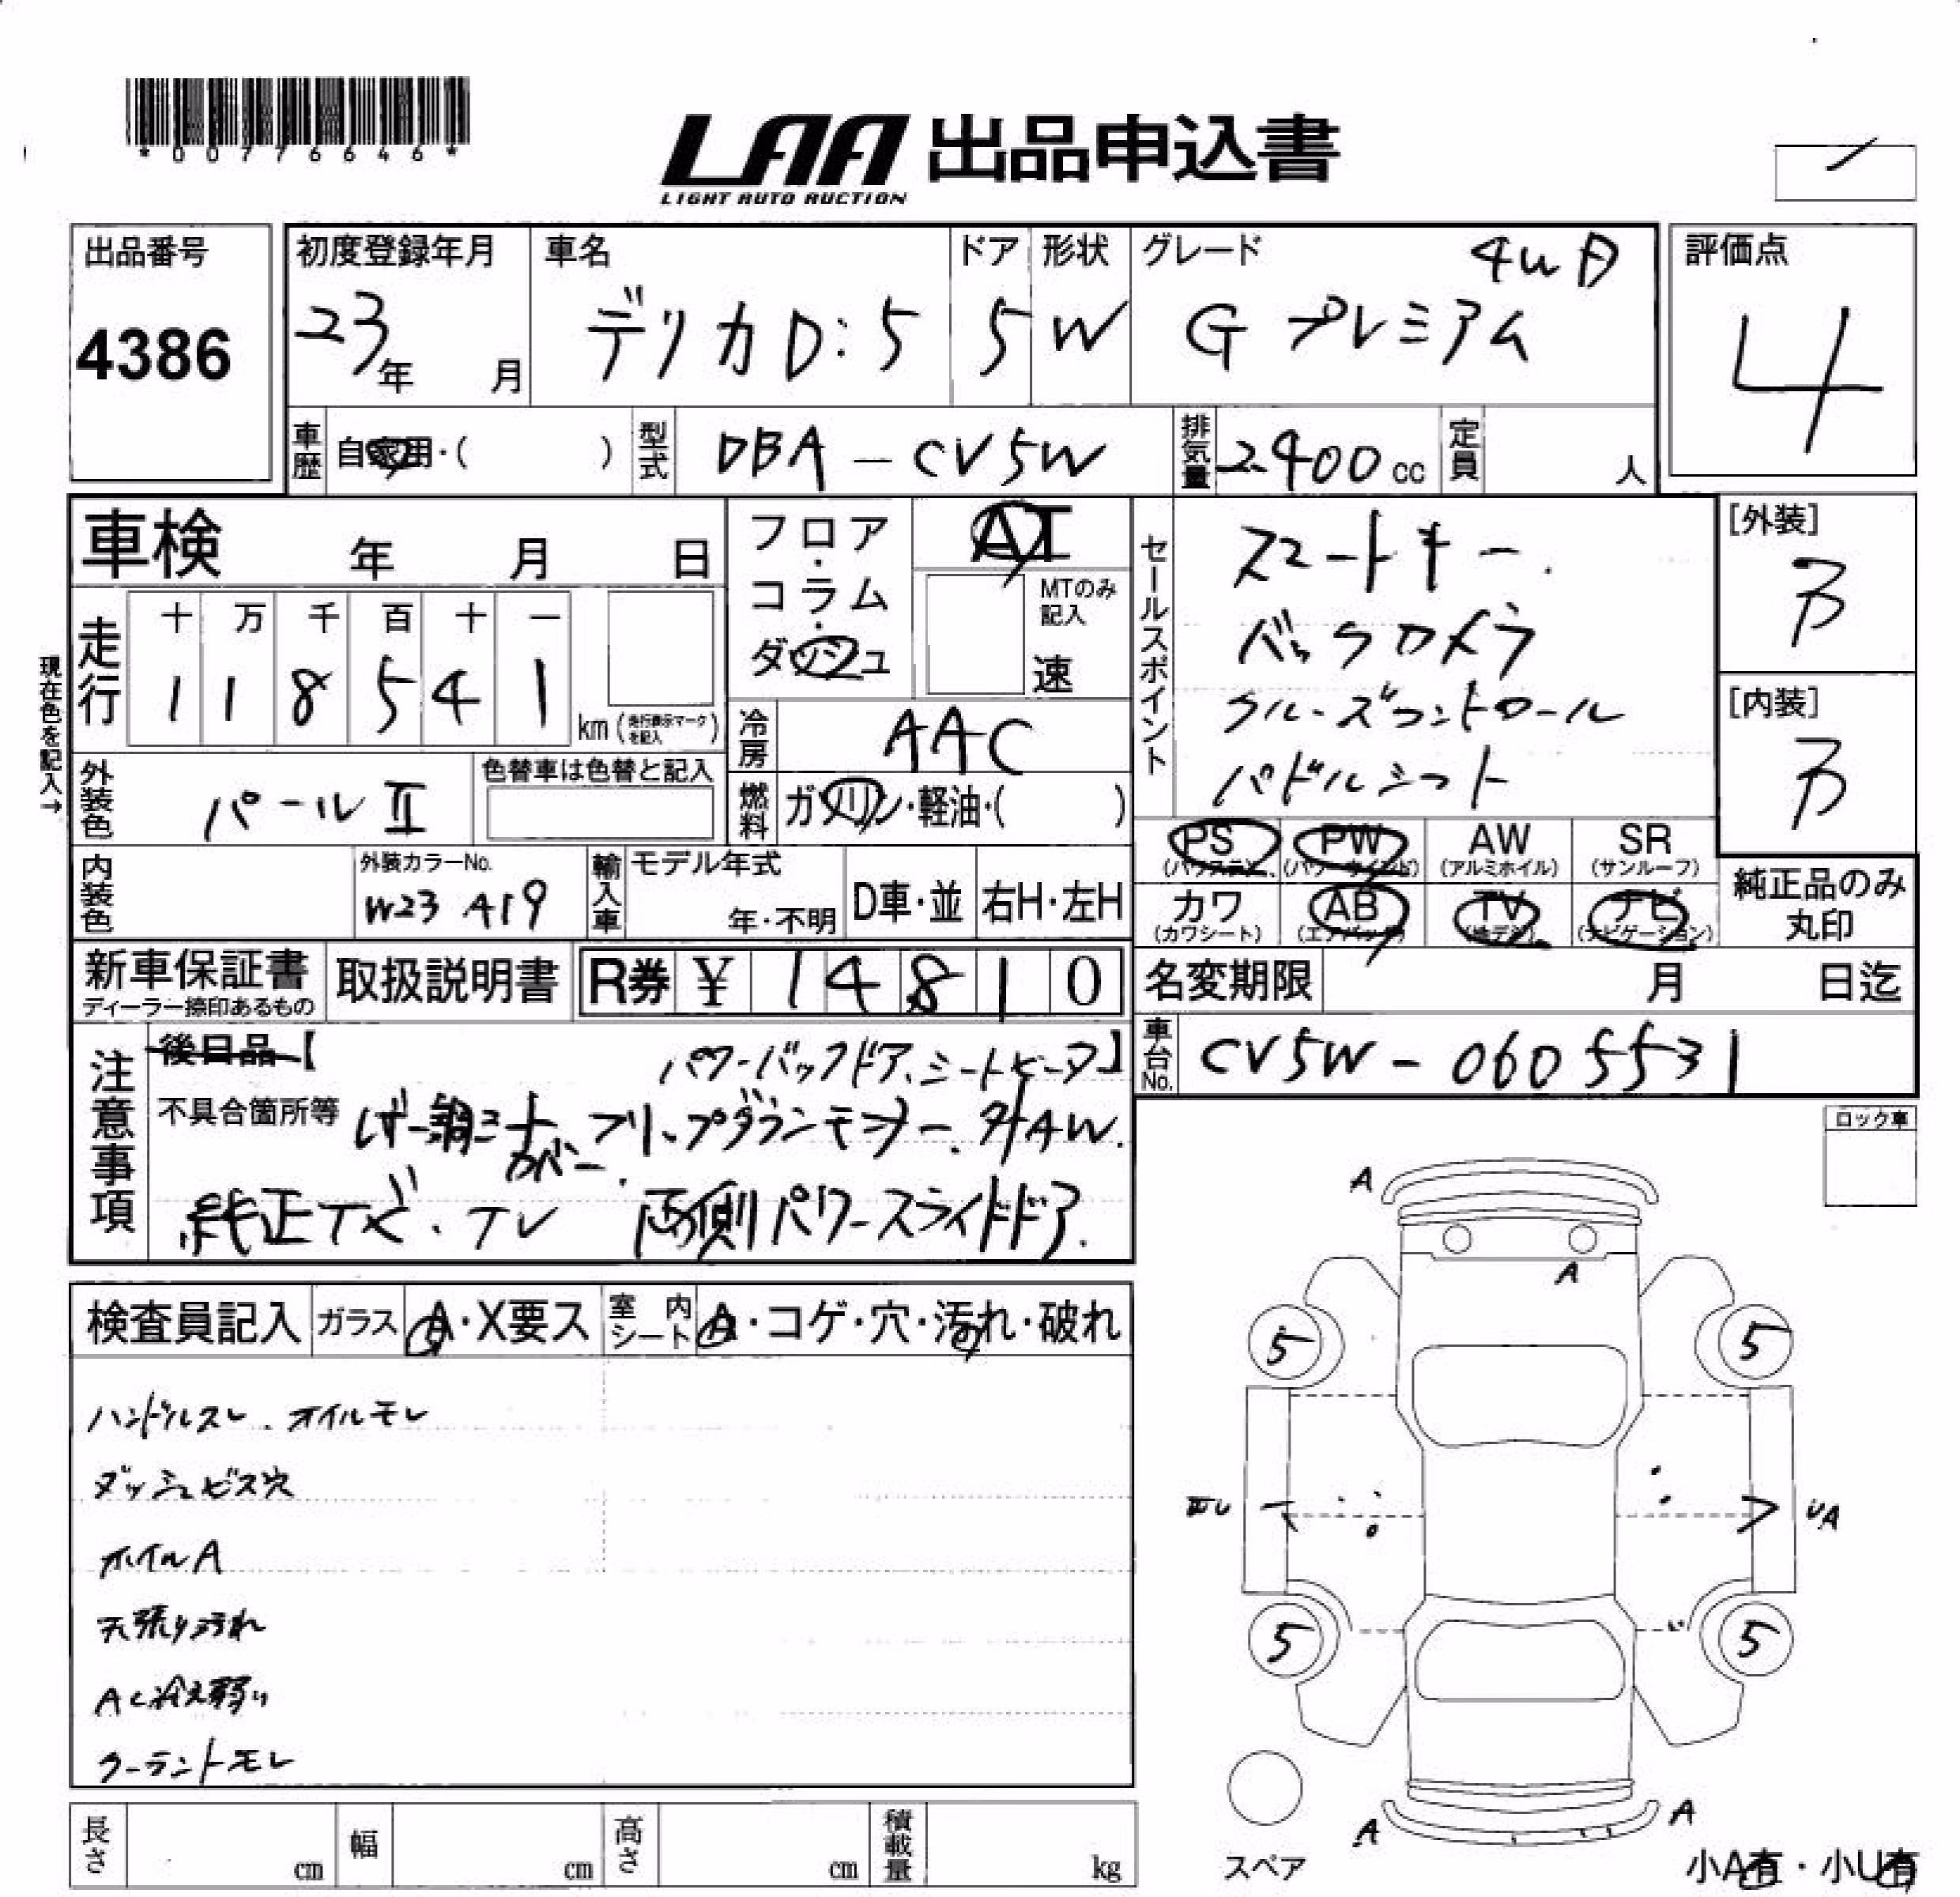 *00776646*
LAA 出品申込書
LIGHT AUTO AUCTION
出品番号
4386
初度登録年月
23年 月
車名
デリカD:5
ドア
5
形状
W
グレード
4WD
Gプレミアム
評価点
4
車歴 自家用・( )
型式 DBA-CV5W
排気量 2400cc
定員 人
車検 年 月 日
フロア・コラム・ダッシュ
AT
MTのみ記入
速
セールスポイント
スマートキー.
バックカメラ
クルーズコントロール
パドルシフト
[外装]
B
[内装]
B
現在色を記入→
走行
十 万 千 百 十 一
1 1 8 5 4 1
km (走行表示マークを記入)
冷房 AAC
外装色 パールⅡ
色替車は色替と記入
燃料 ガソリン・軽油・( )
PS (パワステ)
PW (パワーウインド)
AW (アルミホイル)
SR (サンルーフ)
カワ (カワシート)
AB (エアバック)
TV (地デジ)
ナビ (ナビゲーション)
純正品のみ丸印
内装色
外装カラーNo.
W23 A19
輸入車
モデル年式
年・不明
D車・並
右H・左H
新車保証書
ディーラー捺印あるもの
取扱説明書
R券 ¥ 14810
名変期限 月 日迄
車台No. CV5W-0605531
注意事項
後日品【 パワーバックドア、シートヒータ】
不具合箇所等
フリップダウンモニター. 社外AW.
カバー.
純正ナビ・TV 両側パワースライドドア.
ロック車
検査員記入
ガラス A・X要ス
室内シート A・コゲ・穴・汚れ・破れ
ハンドルスレ. オイルモレ
ダッシュビス穴
ホイルA
天張り汚れ
AC冷え弱い
クーラントモレ
A
A
5 5
UA
5 5
A A
スペア
小A有・小U有
長さ cm
幅 cm
高さ cm
積載量 kg